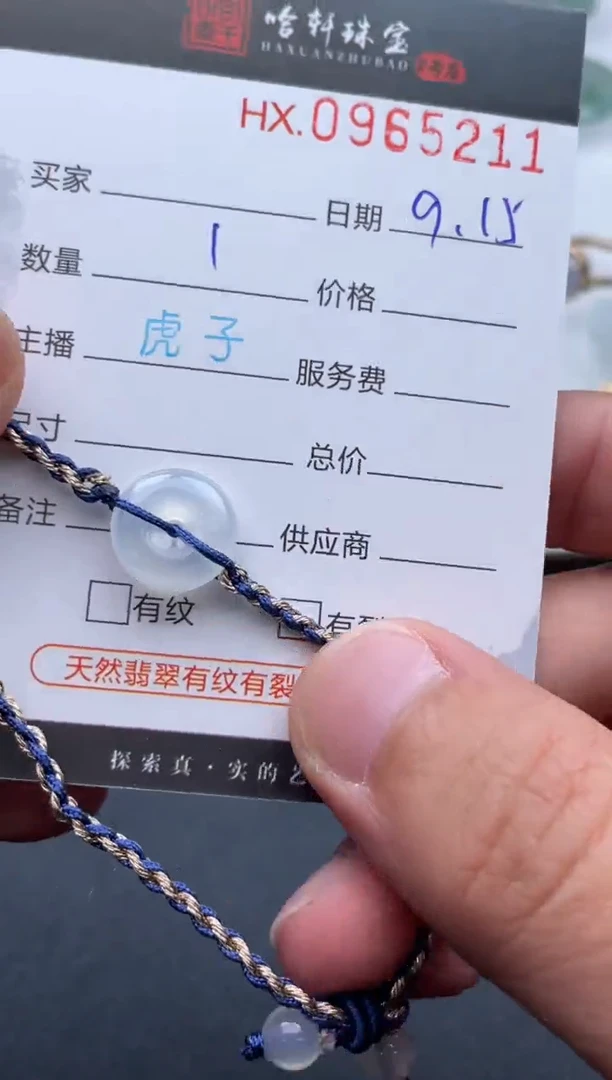 哈轩珠宝
HAXUANZHUBAO
HX.0965211
买家 日期 9.15
数量 1 价格
主播 虎子 服务费
尺寸 总价
备注 供应商
有纹 有裂
天然翡翠有纹有裂
探索真·实的